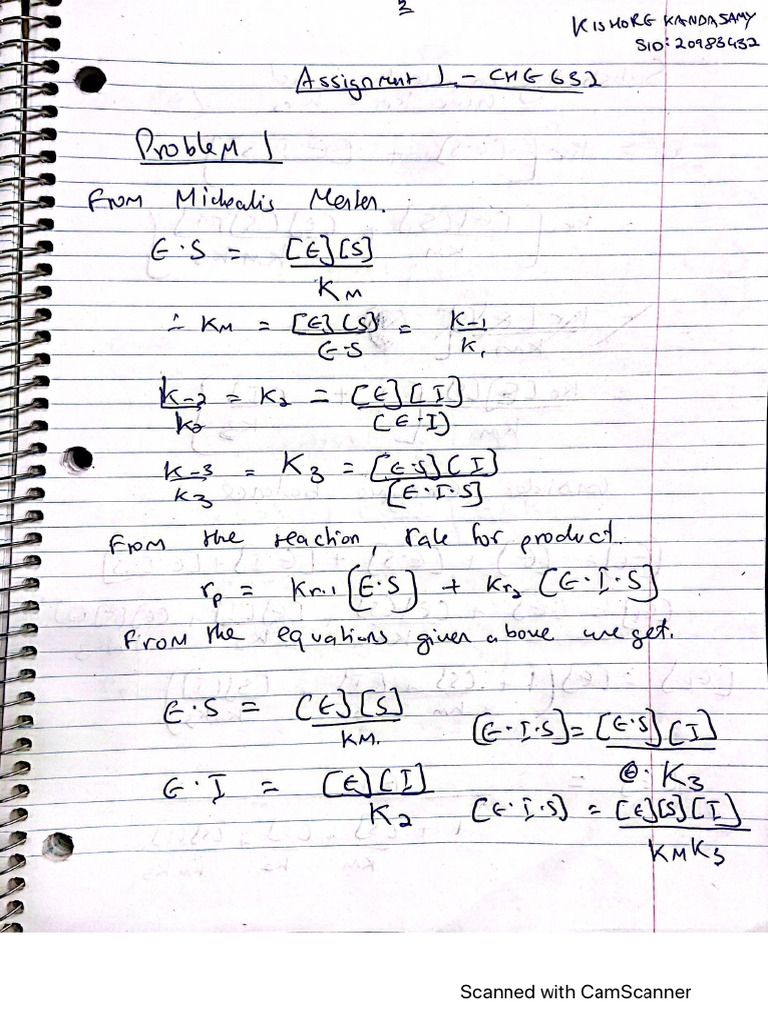 2
KISHORE KANDASAMY
SID: 20983432
Assignment 1 - CHE 632
Problem 1
From Michealis Menten.
E·S = [E][S] / KM
∴ KM = [E][S] / E·S = K-1 / K1
K-2 / K2 = K2 = [E][I] / (E·I)
K-3 / K3 = K3 = [E·S][I] / [E·I·S]
From the reaction, rate for product.
rp = Kr1 [E·S] + Kr2 [E·I·S]
From the equations given above we get.
E·S = [E][S] / KM.
[E·I·S] = [E·S][I] / K3
E·I = [E][I] / K2
[E·I·S] = [E][S][I] / KMK3
Scanned with CamScanner